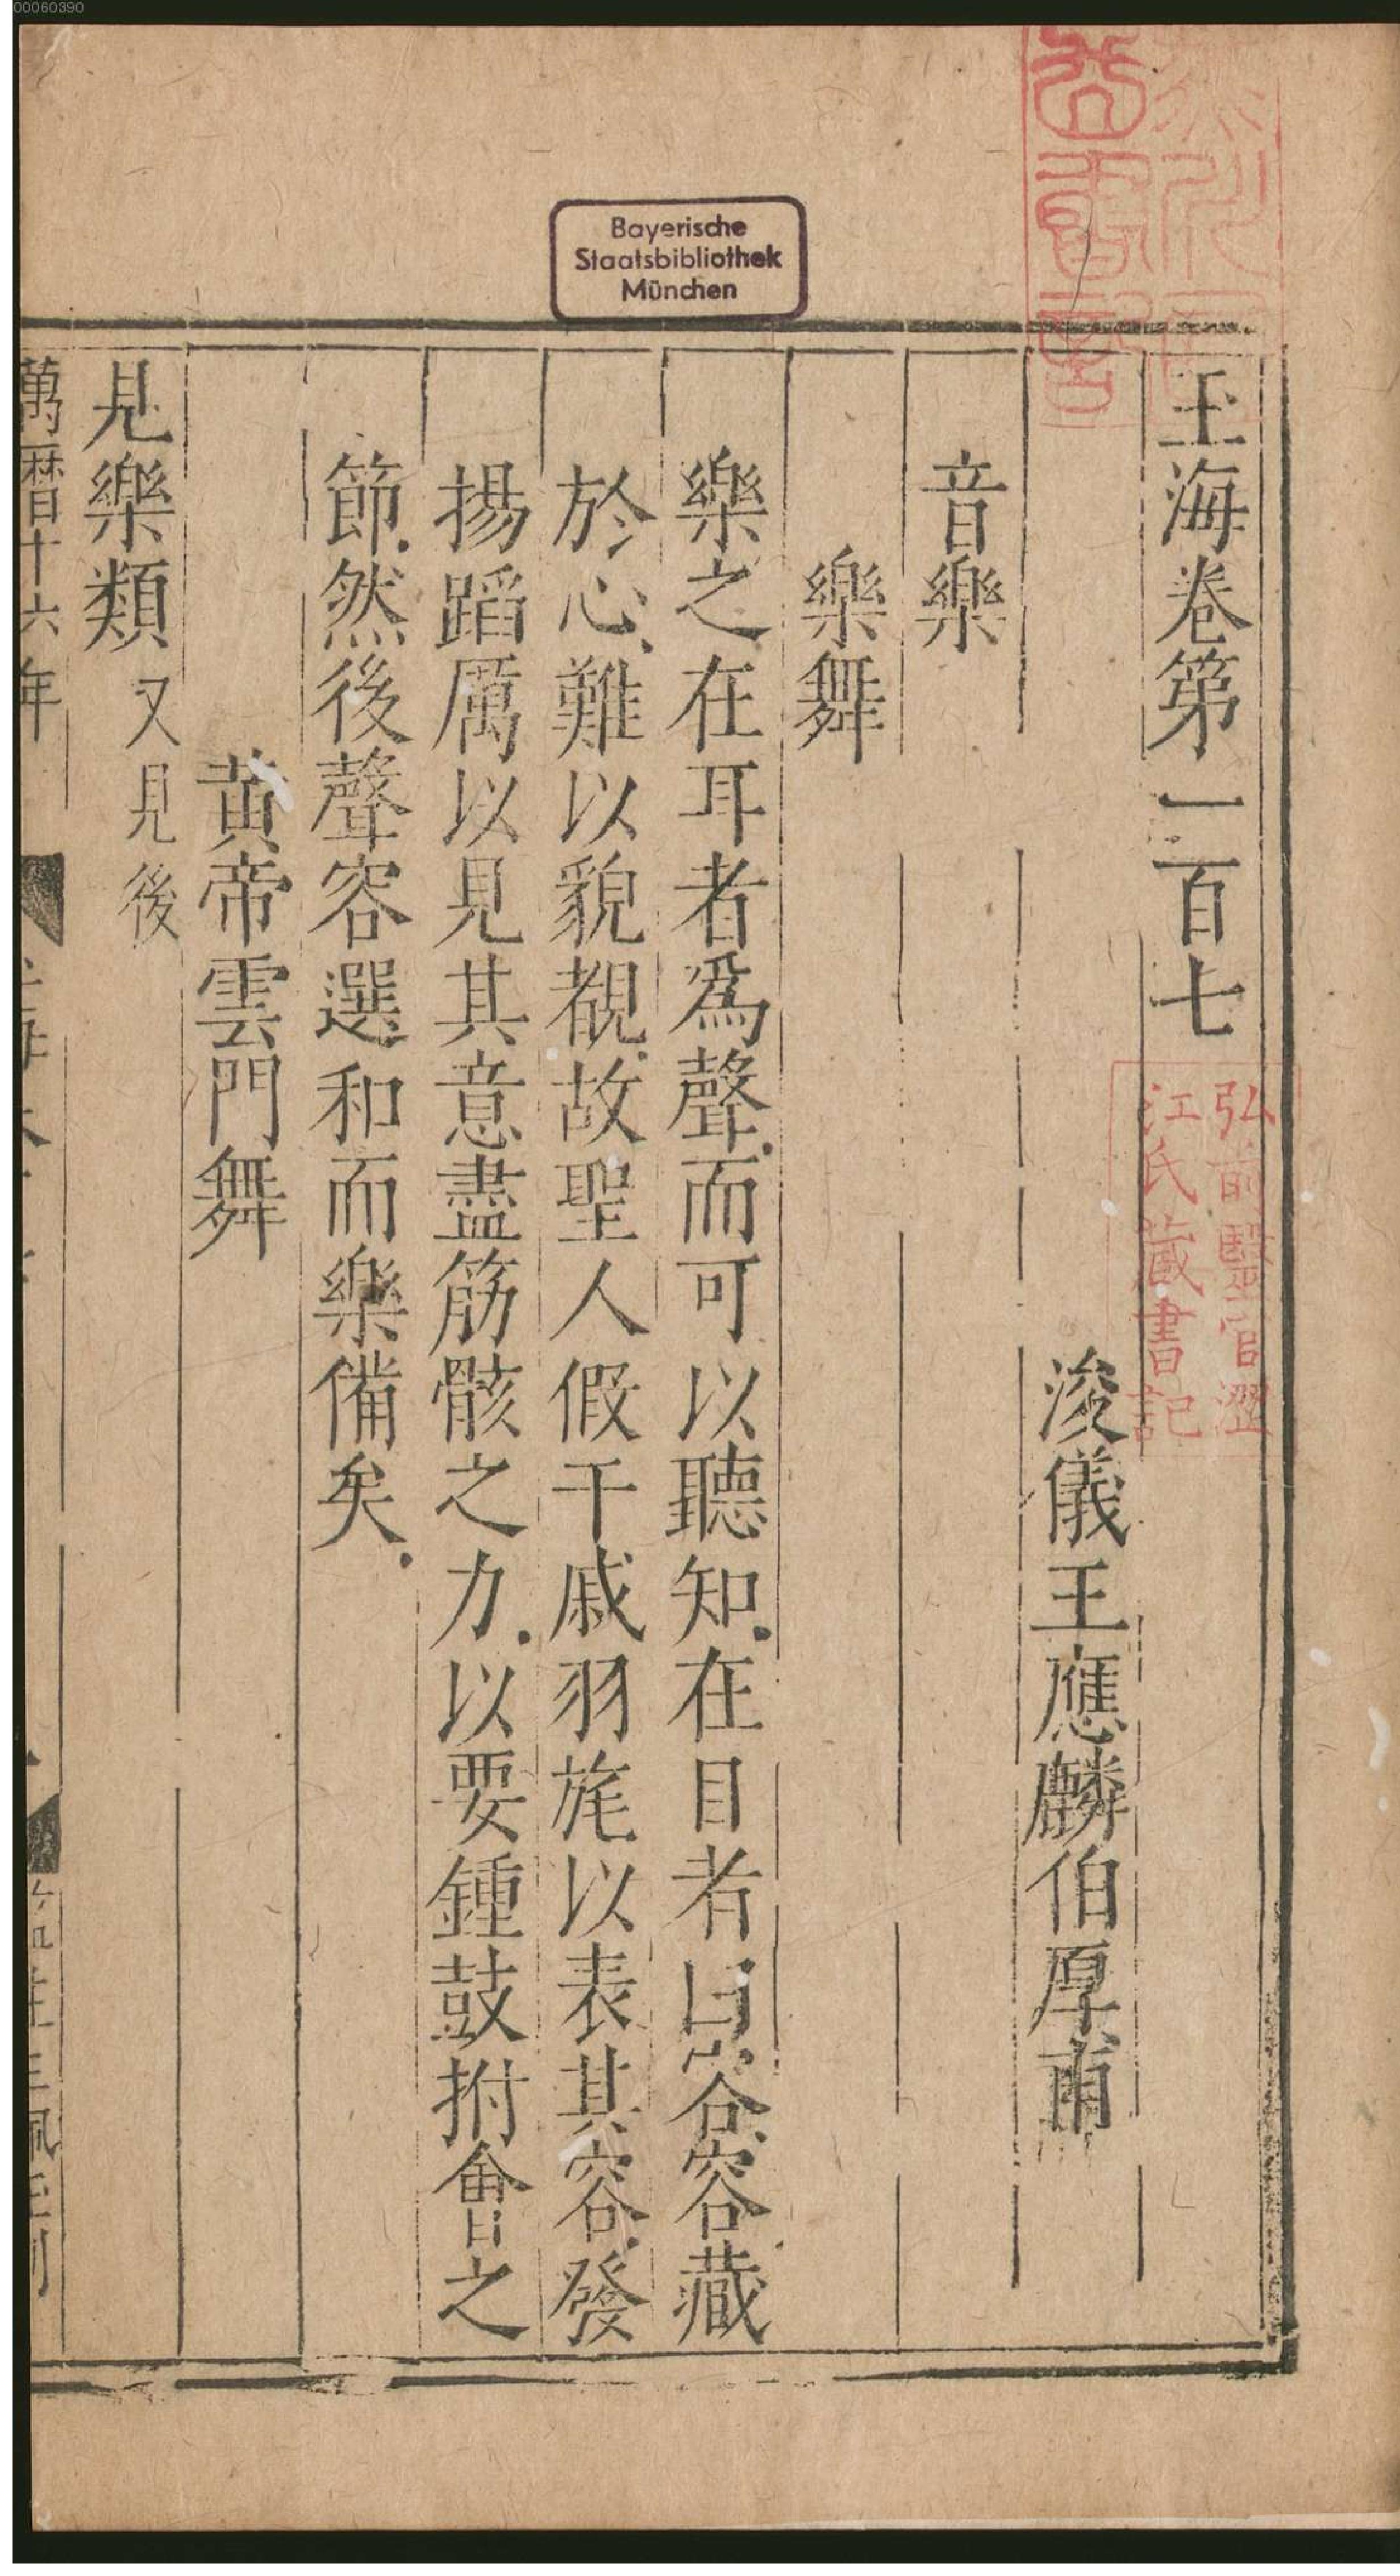 00060390
Bayerische
Staatsbibliothek
München
玉海卷第一百七
弘前醫官澀
江氏藏書記
浚儀王應麟伯厚甫
音樂
樂舞
樂之在耳者爲聲而可以聽知在目者曰容容藏
於心難以貌覩故聖人假干戚羽旄以表其容發
揚蹈厲以見其意盡筋骸之力以要鍾鼓拊會之
節然後聲容選和而樂備矣
黃帝雲門舞
見樂類又見後
萬曆十六年